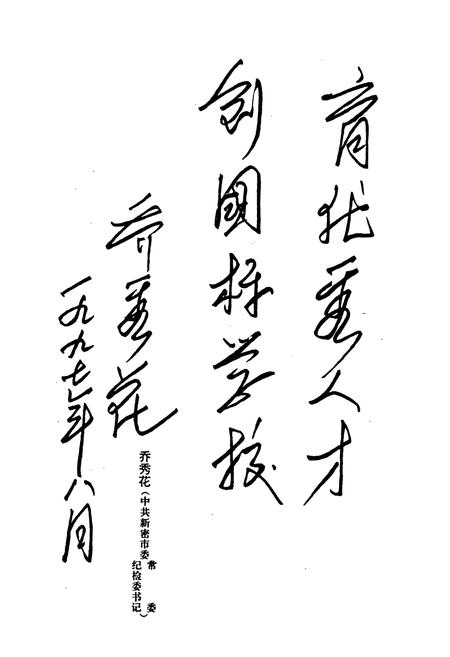 育优秀人才
创國标学校
乔秀花
一九九七年八月
乔秀花（中共新密市委常委
纪检委书记）